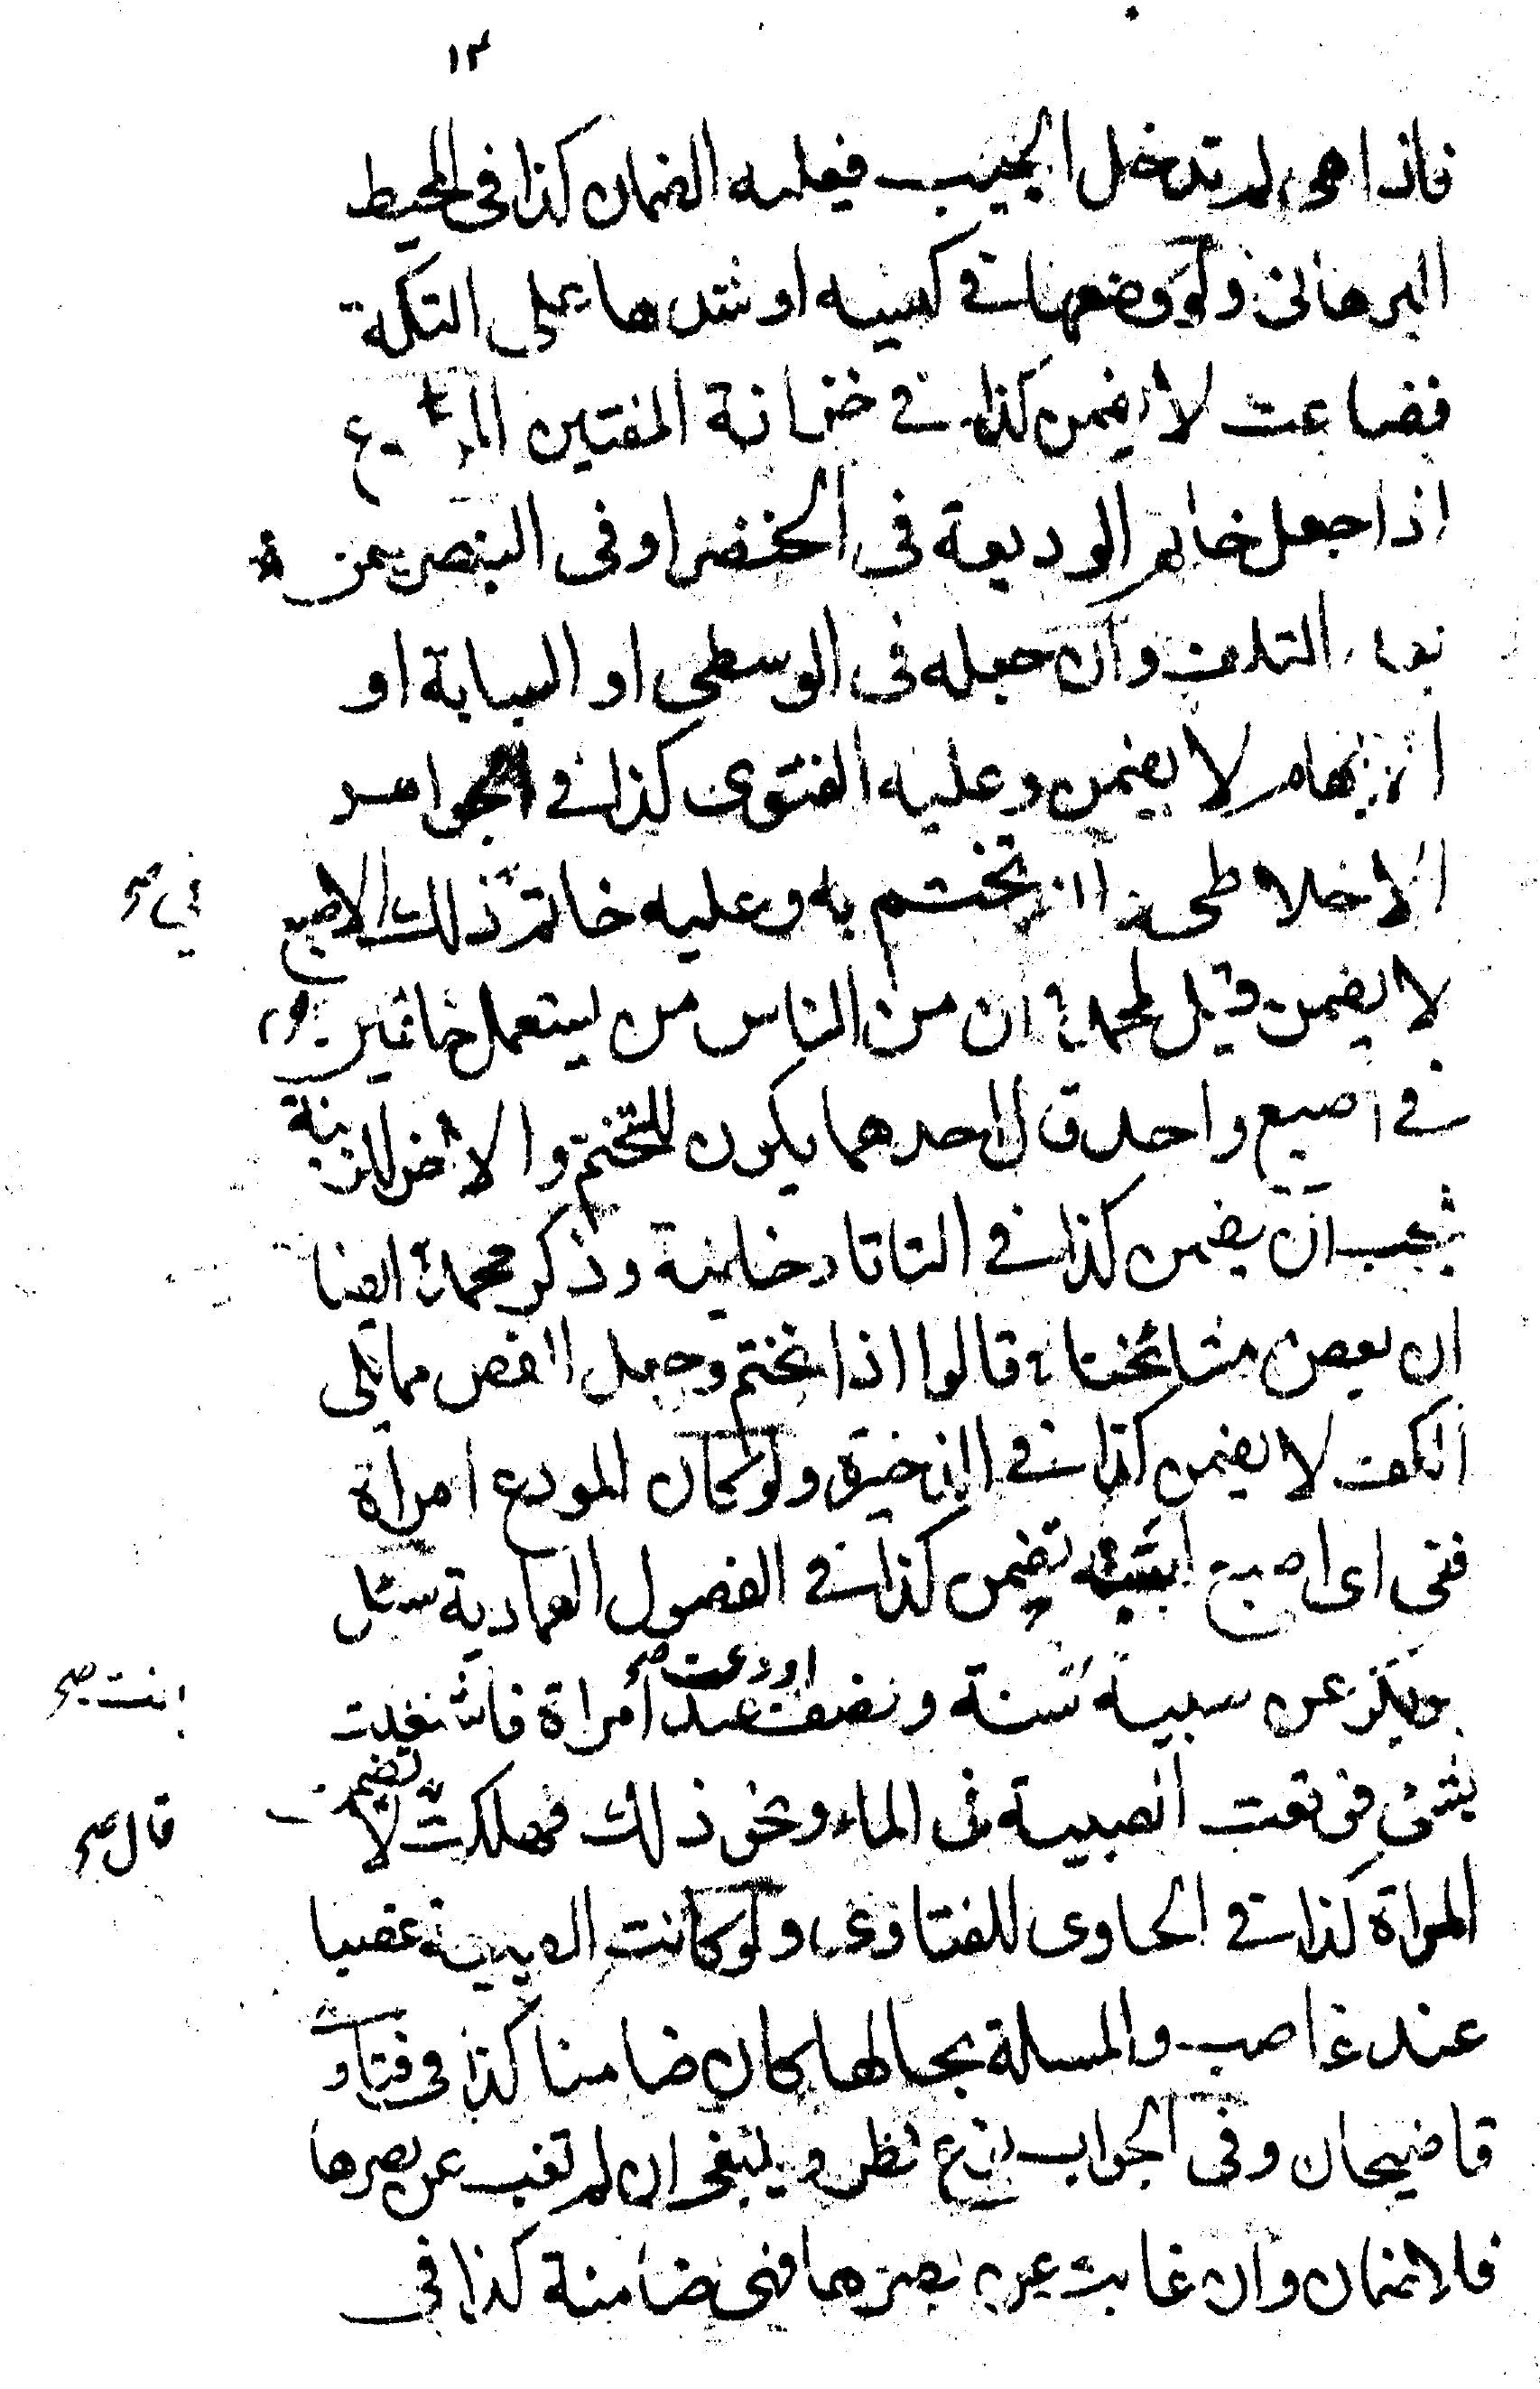 ١٣
فاذا هى لم تدخل الجيب فعليه الضمان كذا فى المحيط
البرهانى ولو وضعها فى كيسه او شدها على التكة
فضاعت لا يضمن كذا فى خزانة المفتين المودع
اذا جعل خاتم الوديعة فى الخنصر او فى البنصر يضمن
التلف وان جعله فى الوسطى او السبابة او
الابهام لا يضمن وعليه الفتوى كذا فى الجواهر
الاخلاطى تختم به وعليه خاتم ذلك الاصبع
لا يضمن قيل لمحمد ان من الناس من يستعمل خاتمين
فى اصبع واحد قال احدهما يكون للتختم والاخر للزينة
يجب ان يضمن كذا فى التاتارخانية وذكر محمد ايضا
ان بعض مشائخنا قالوا اذا تختم وجعل الفص مما يلى
الكف لا يضمن كذا فى الذخيرة ولو كان المودع امراة
ففى اى اصبع لبسته تضمن كذا فى الفصول العمادية سئل
ابوبكر عن صبية سنة ونصف اودعت صح عند امراة فاشتغلت
بشئ فوقعت الصبية فى الماء ونحو ذلك فهلكت لا تضمن
قال صح
المراة كذا فى الحاوى للفتاوى ولو كانت الصبية غصبا
عند غاصب والمسلة بحالها كان ضامنا كذا فى فتاو
قاضيخان وفى الجواب نوع نظر وينبغى ان لم تغب عن بصرها
فلا ضمان وان غابت عن بصرها فهى ضامنة كذا فى